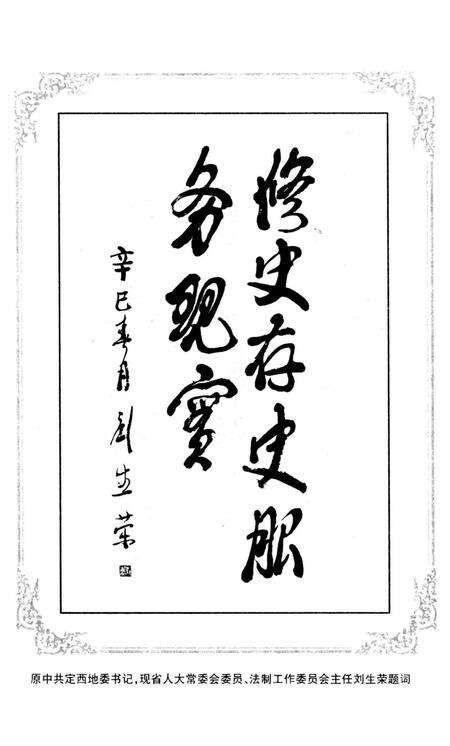 修史存史服
务现实
辛巳春月 刘生荣
原中共定西地委书记,现省人大常委会委员、法制工作委员会主任刘生荣题词